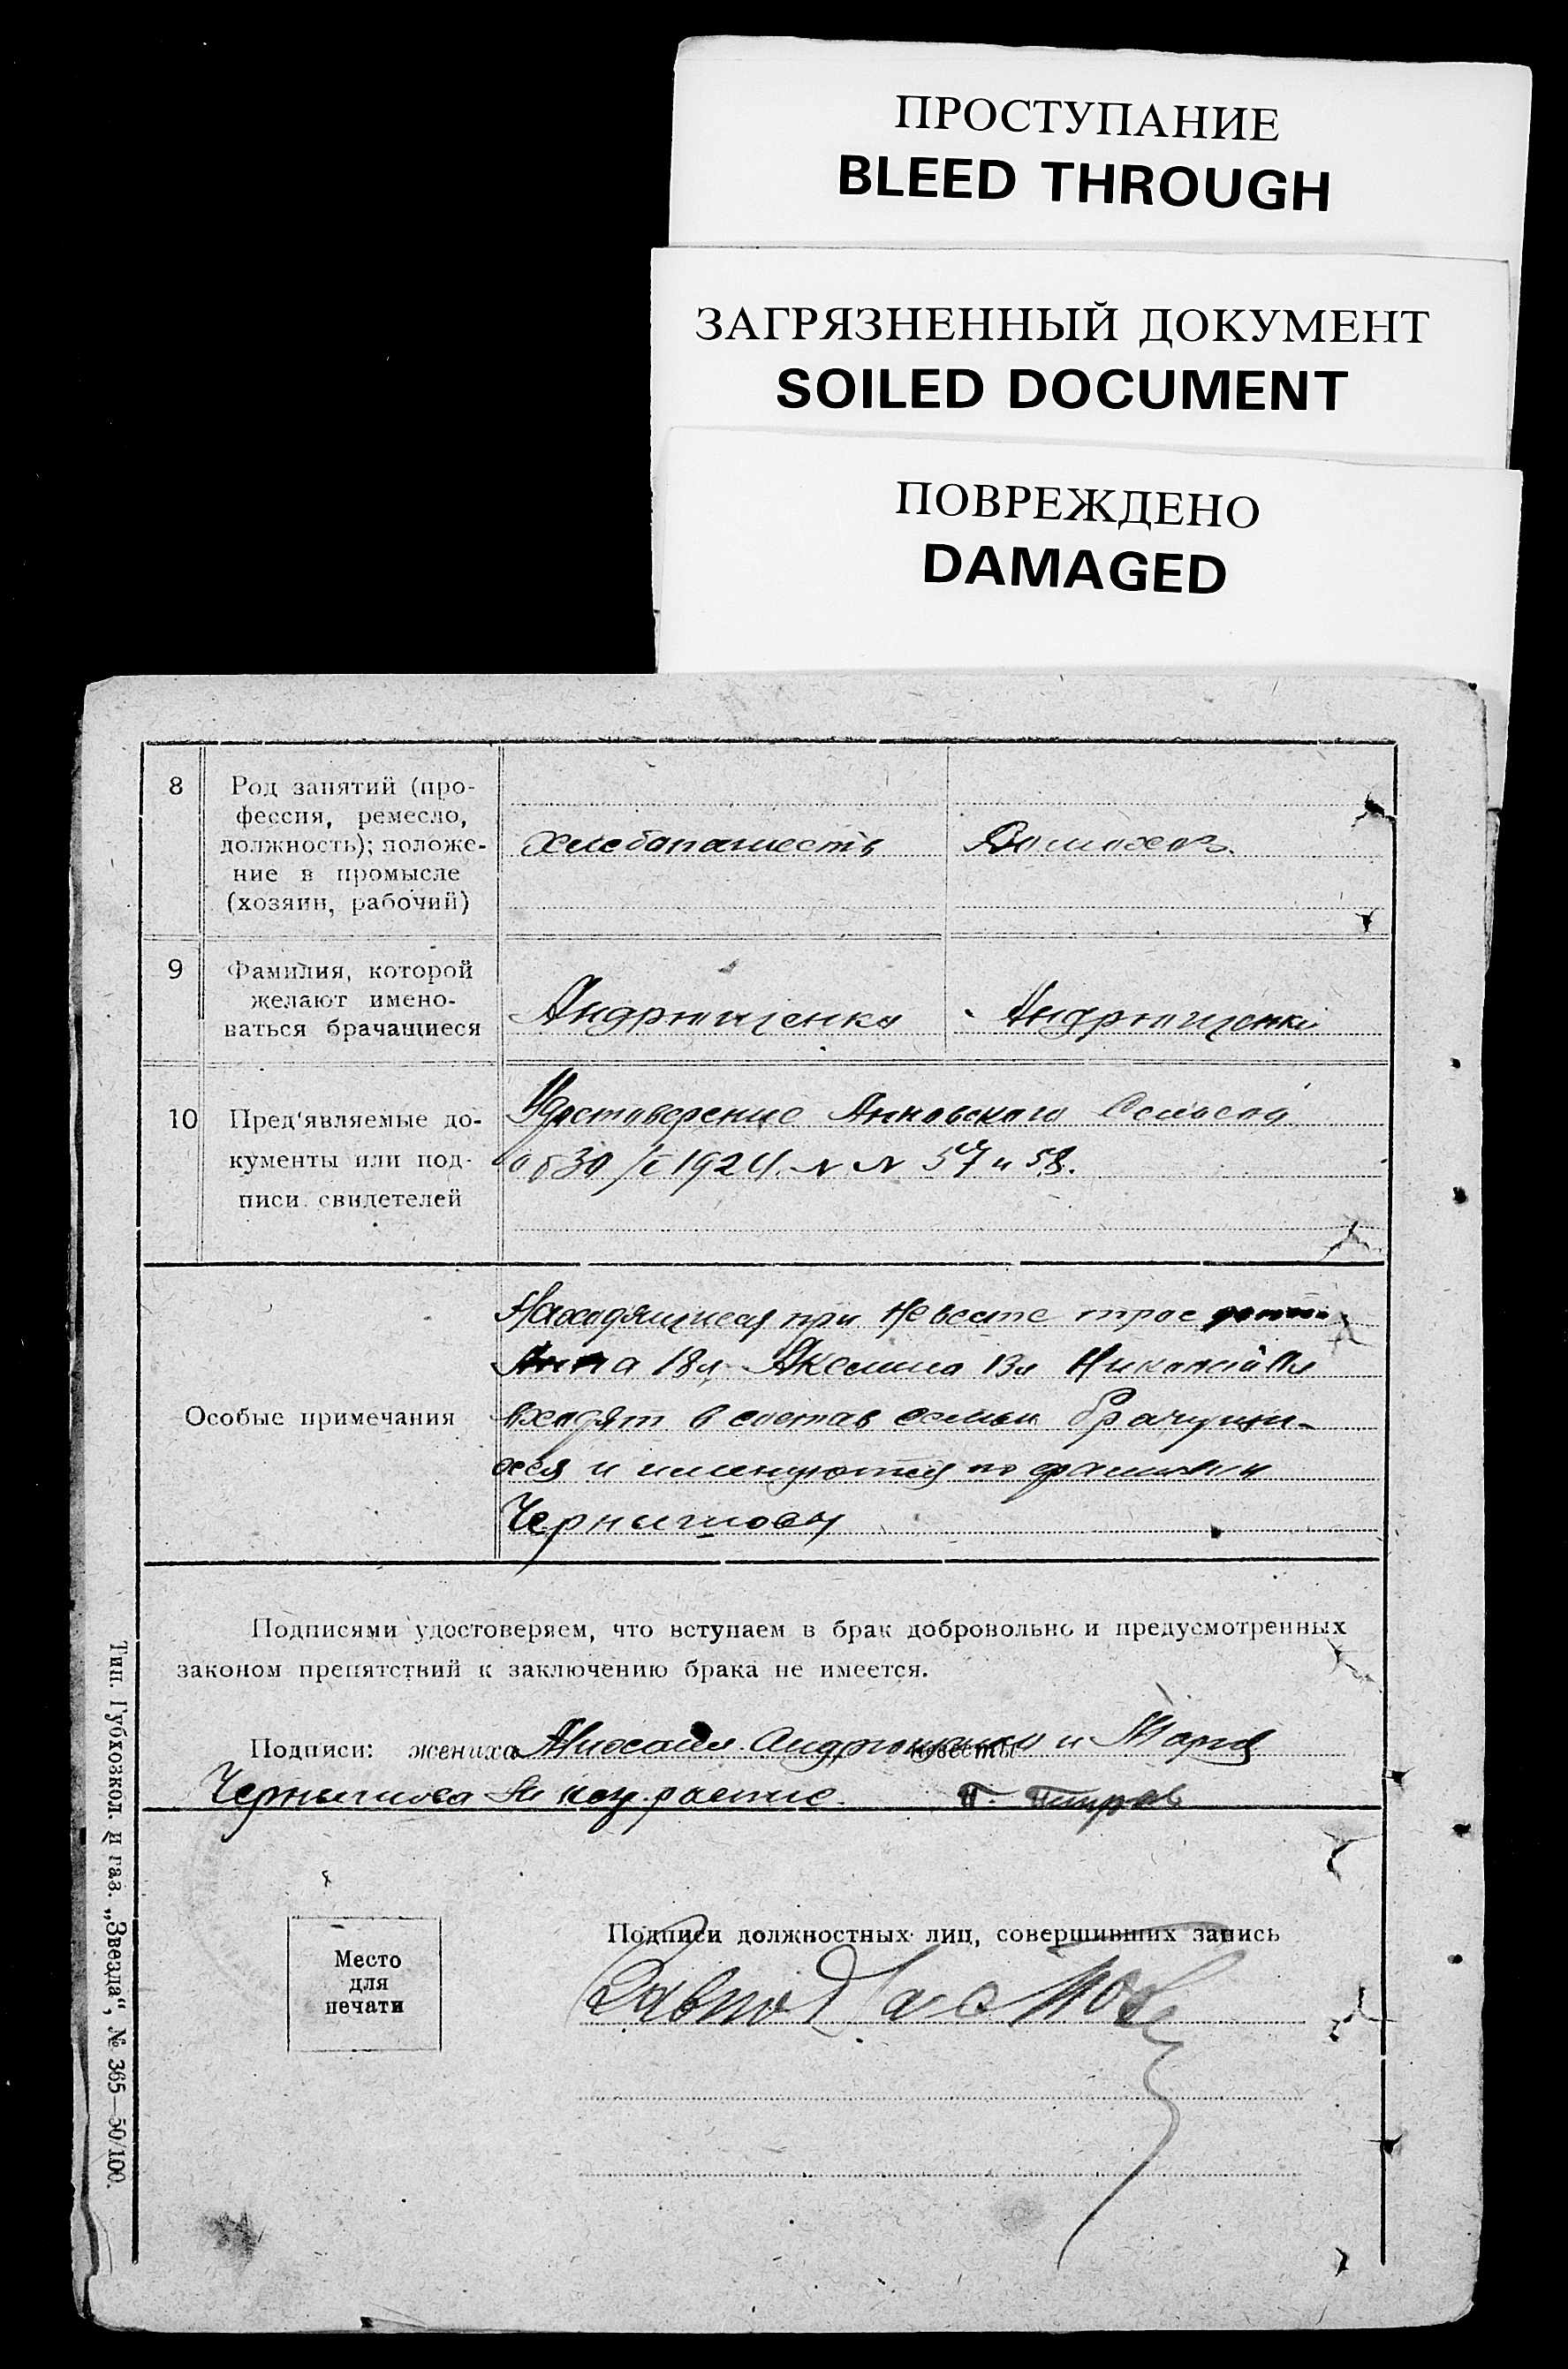 ПРОСТУПАНИЕ
BLEED THROUGH
ЗАГРЯЗНЕННЫЙ ДОКУМЕНТ
SOILED DOCUMENT
ПОВРЕЖДЕНО
DAMAGED
8
Род занятий (про-
фессия, ремесло,
должность); положе-
ние в промысле
(хозяин, рабочий)
Хлебопашеств
Домохоз.
9
Фамилия, которой
желают имено-
ваться брачащиеся
Андрющенко
Андрющенко
10
Пред'являемые до-
кументы или под-
писи свидетелей
Удостоверение Анновского
30/I 1924. N N 57 и 58.
Особые примечания
Находящиеся при Невесте трое
Анна 18 л, Аксинио 13 л Николай
входят в состав семьи брачущи-
хся и именуются по фамилии
Чернышовы
Подписями удостоверяем, что вступаем в брак добровольно и предусмотренных
законом препятствий к заключению брака не имеется.
Подписи: жениха невесты и Мария
Чернышова
Место
для
печати
Подписи должностных лиц, совершивших запись
Тип. Губхозкол. и газ. „Звезда“, № 365—50/100.